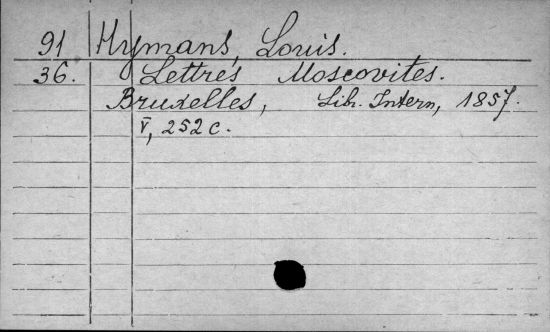 91 Hymans, Louis.
36. Lettres Moscovites.
Bruxelles, Lib. Intern, 1857.
V, 252 c.